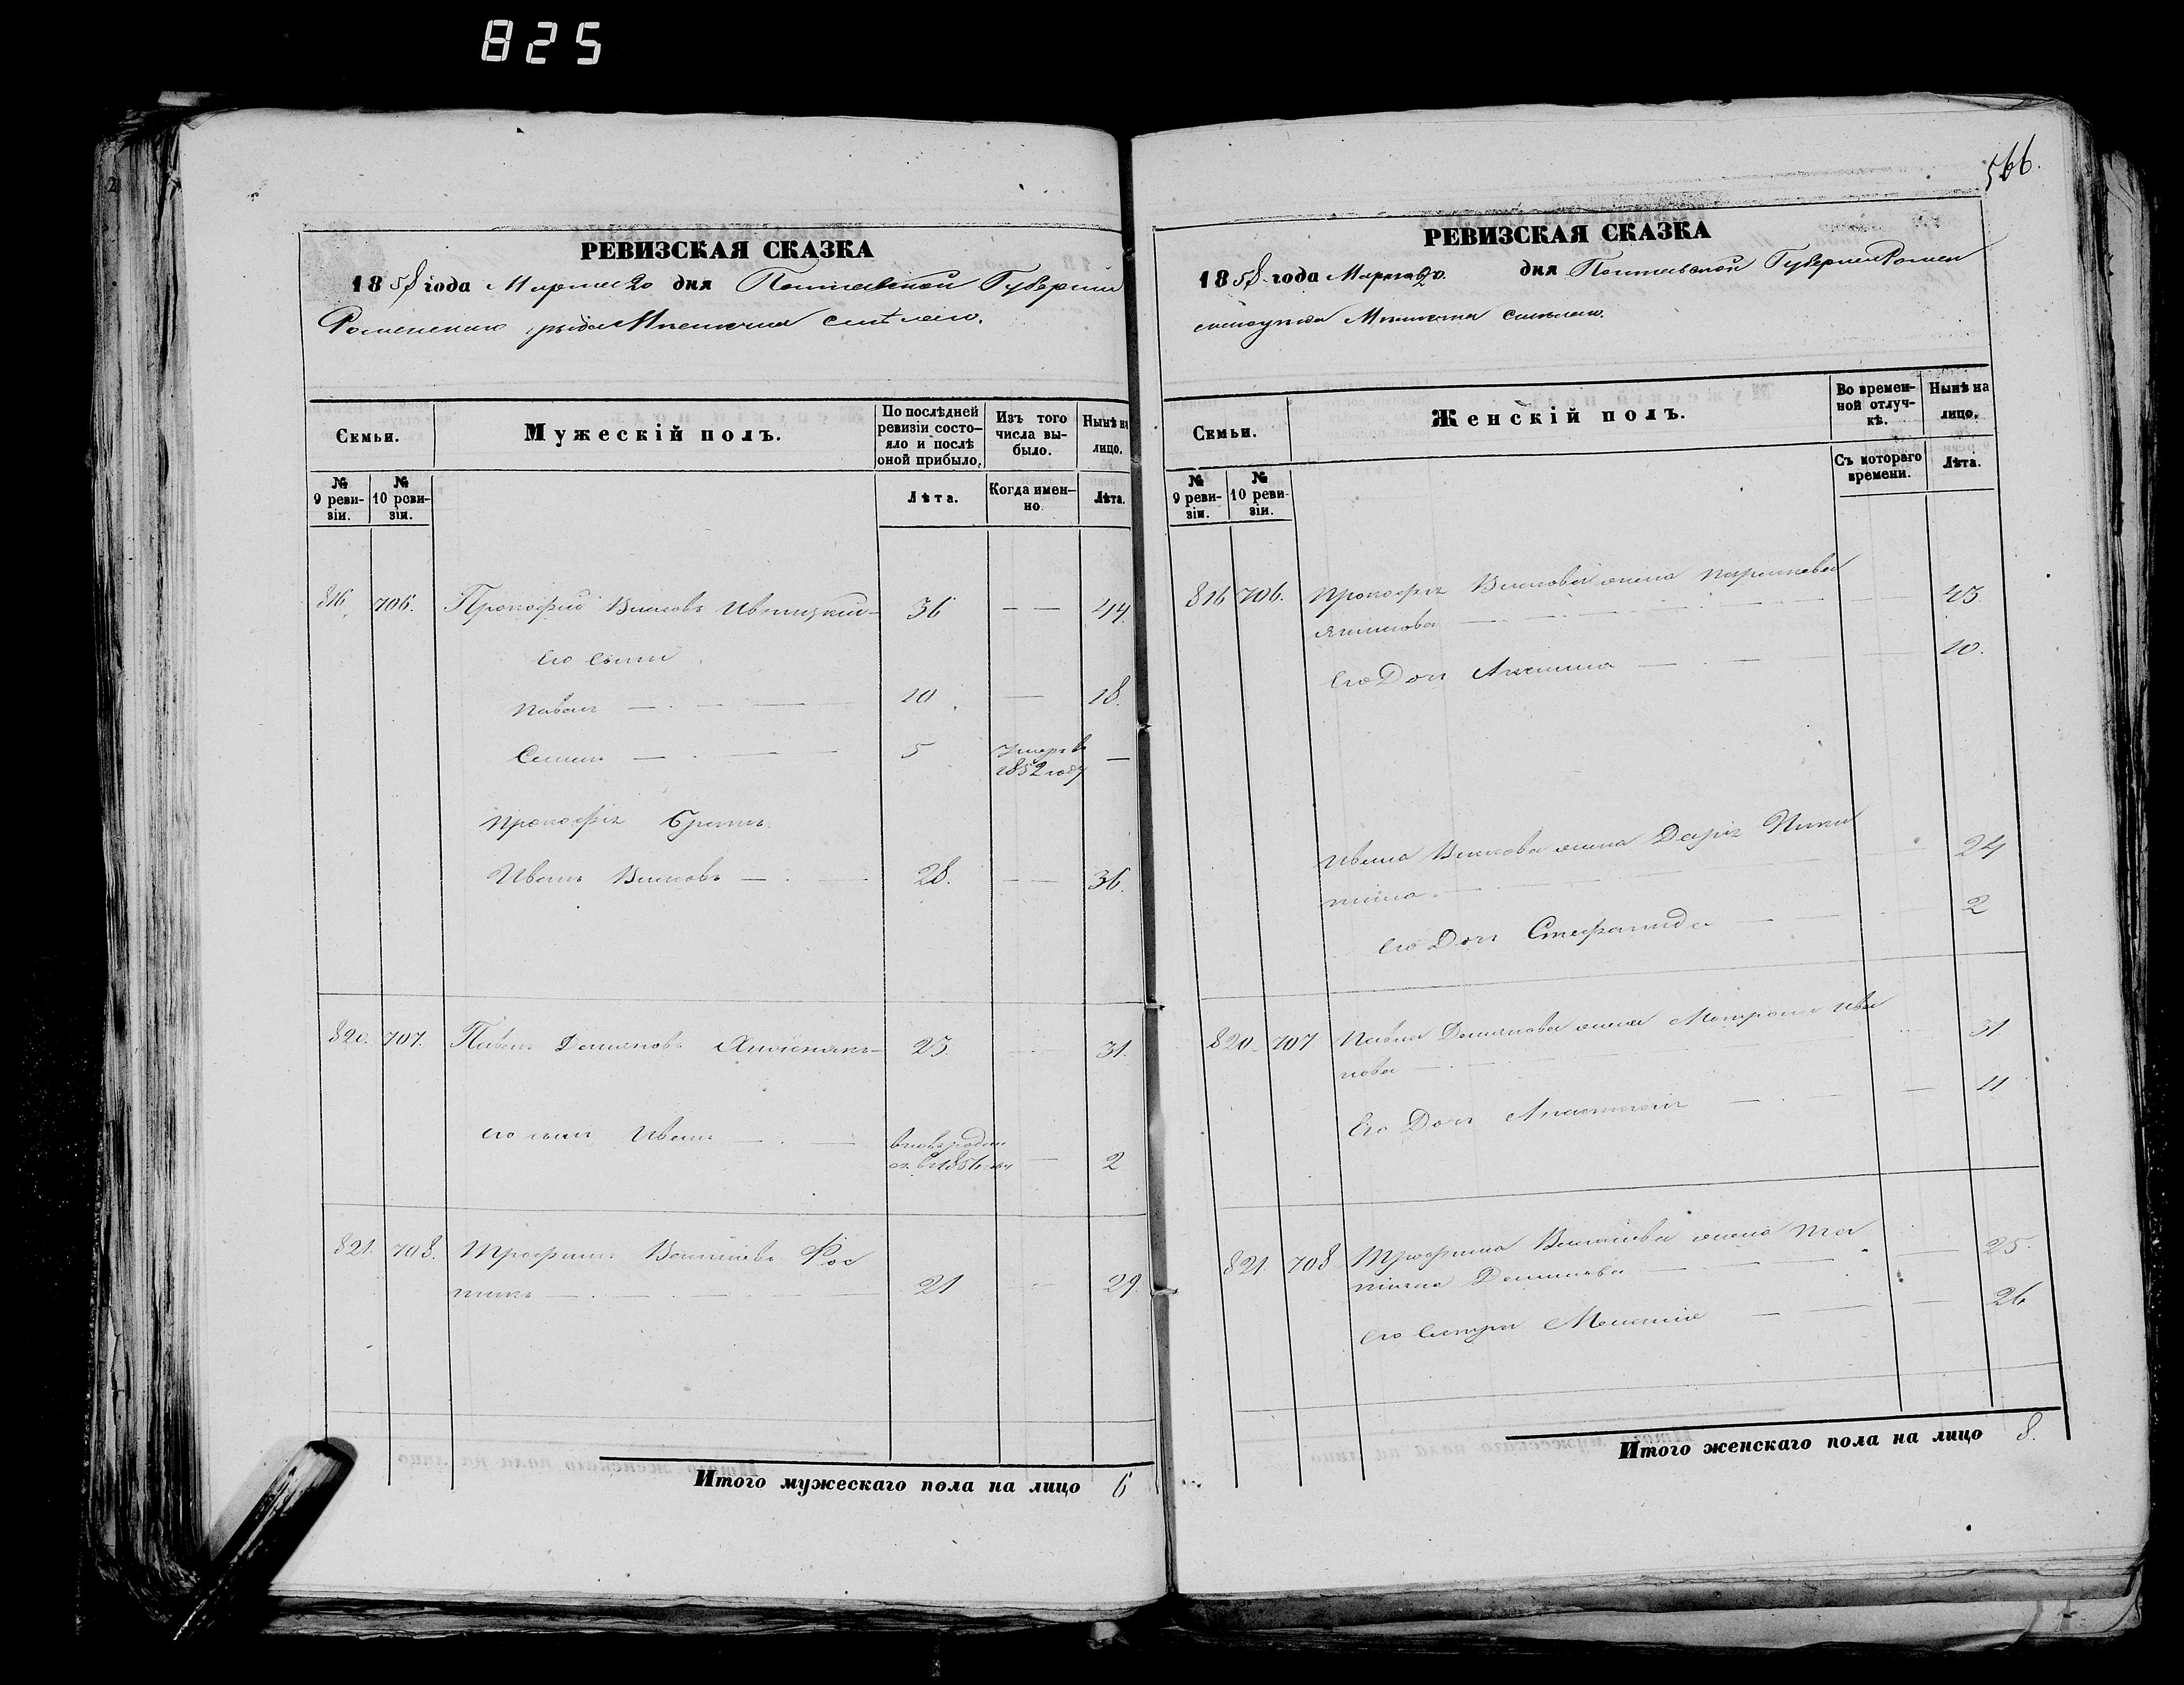 825
РЕВИЗСКАЯ СКАЗКА
1858 года Марта 20 дня Полтавской Губернии
Роменскаго уѣзда Мѣстечка Смѣлаго.
Семьи.
Мужескій полъ.
По послѣдней ревизіи состояло и послѣ оной прибыло.
Изъ того числа выбыло.
Нынѣ на лицо.
№ 9 ревизіи.
№ 10 ревизіи.
Лѣта.
Когда именно
Лѣта.
816 706. Прокофій Власовъ 36 — — 44.
Его сыны
Павелъ — 10 — 18.
Семенъ — 5 Умеръ въ 1852 году —
Прокофія братъ
Иванъ Власовъ — 28. — — 36.
820. 707. Павелъ Демяновъ 23 — 31.
Его сынъ Иванъ — вновь родился въ 1856 году — 2
821. 708. Трофимъ
21 — 29.
Итого мужескаго пола на лицо 6
566.
РЕВИЗСКАЯ СКАЗКА
1858 года Марта 20. дня Полтавской Губерніи Ромен
скаго уѣзда Мѣстечка Смѣлаго.
Семьи.
Женскій полъ.
Во временной отлучкѣ.
Нынѣ на лицо.
№ 9 ревизіи.
№ 10 ревизіи.
Съ котораго времени.
Лѣта.
816 706. Прокофія Власова жена Парасковья
— 43.
Его Дочь — 10.
Ивана Власова жена Дарья Ники
тина — 24
Его Дочь Степанида — 2
820 707 Павла Демянова жена Матрона Ива
нова — 31
Его Дочь Анастасія — 11
821. 708 Трофима жена Та
тіяна — 25.
Его Сестра — 26
Итого женскаго пола на лицо 8.